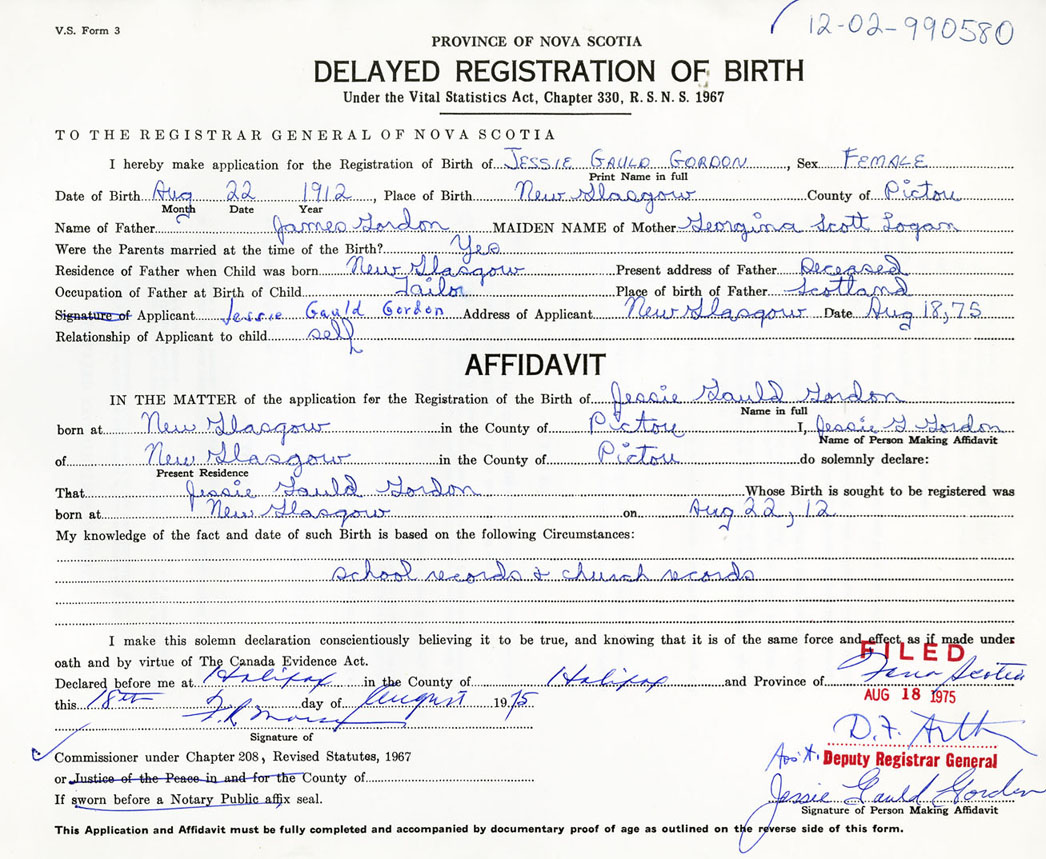 V.S. Form 3
12-02-990580
PROVINCE OF NOVA SCOTIA
DELAYED REGISTRATION OF BIRTH
Under the Vital Statistics Act, Chapter 330, R. S. N. S. 1967
TO THE REGISTRAR GENERAL OF NOVA SCOTIA
I hereby make application for the Registration of Birth of JESSIE GAULD GORDON, Sex FEMALE
Print Name in full
Date of Birth Aug 22 1912, Place of Birth New Glasgow County of Pictou
Month Date Year
Name of Father James Gordon MAIDEN NAME of Mother Georgina Scott Logan
Were the Parents married at the time of the Birth? Yes
Residence of Father when Child was born New Glasgow Present address of Father Deceased
Occupation of Father at Birth of Child Tailor Place of birth of Father Scotland
Signature of Applicant Jessie Gauld Gordon Address of Applicant New Glasgow Date Aug 18, 75
Relationship of Applicant to child self
AFFIDAVIT
IN THE MATTER of the application for the Registration of the Birth of Jessie Gauld Gordon
Name in full
born at New Glasgow in the County of Pictou I, Jessie G Gordon
Name of Person Making Affidavit
of New Glasgow in the County of Pictou do solemnly declare:
Present Residence
That Jessie Gauld Gordon Whose Birth is sought to be registered was
born at New Glasgow on Aug 22, 12
My knowledge of the fact and date of such Birth is based on the following Circumstances:
school records & church records
I make this solemn declaration conscientiously believing it to be true, and knowing that it is of the same force and effect as if made under
oath and by virtue of The Canada Evidence Act.
FILED
Declared before me at Halifax in the County of Halifax and Province of Nova Scotia
this 18th day of August 1975
AUG 18 1975
Signature of
Commissioner under Chapter 208, Revised Statutes, 1967
or Justice of the Peace in and for the County of
If sworn before a Notary Public affix seal.
D.F.
Ass't. Deputy Registrar General
Jessie Gauld Gordon
Signature of Person Making Affidavit
This Application and Affidavit must be fully completed and accompanied by documentary proof of age as outlined on the reverse side of this form.